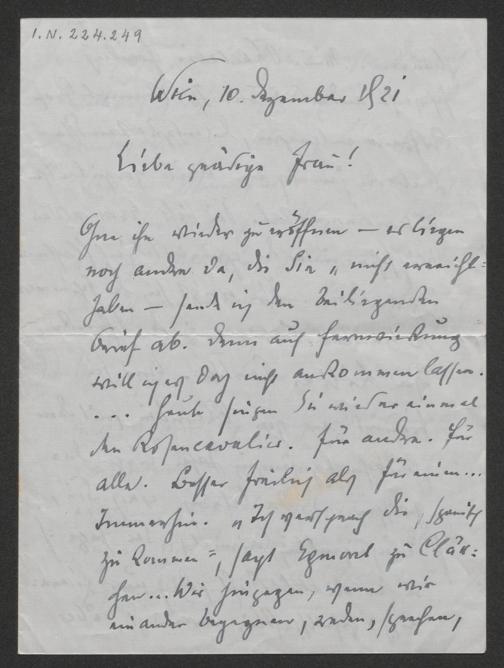 I.N. 224.249
Wien, 10. Dezember 1921
Liebe gnädige Frau!
Ohne ihn wieder zu eröffnen — es liegen
noch andre da, die Sie „nicht erreicht
haben — sende ich den beiliegenden
Brief ab. Denn auf Fernwirkung
will ich es doch nicht ankommen lassen.
... Heute singen Sie wieder einmal
den Rosencavalier. Für andre. Für
alle. Besser freilich als für einen...
Immerhin. „Ich versprach dir, spanisch
zu kommen“, sagt Egmont zu Clär=
chen... Wir hingegen, wenn wir
einander begegnen, reden, sprechen,